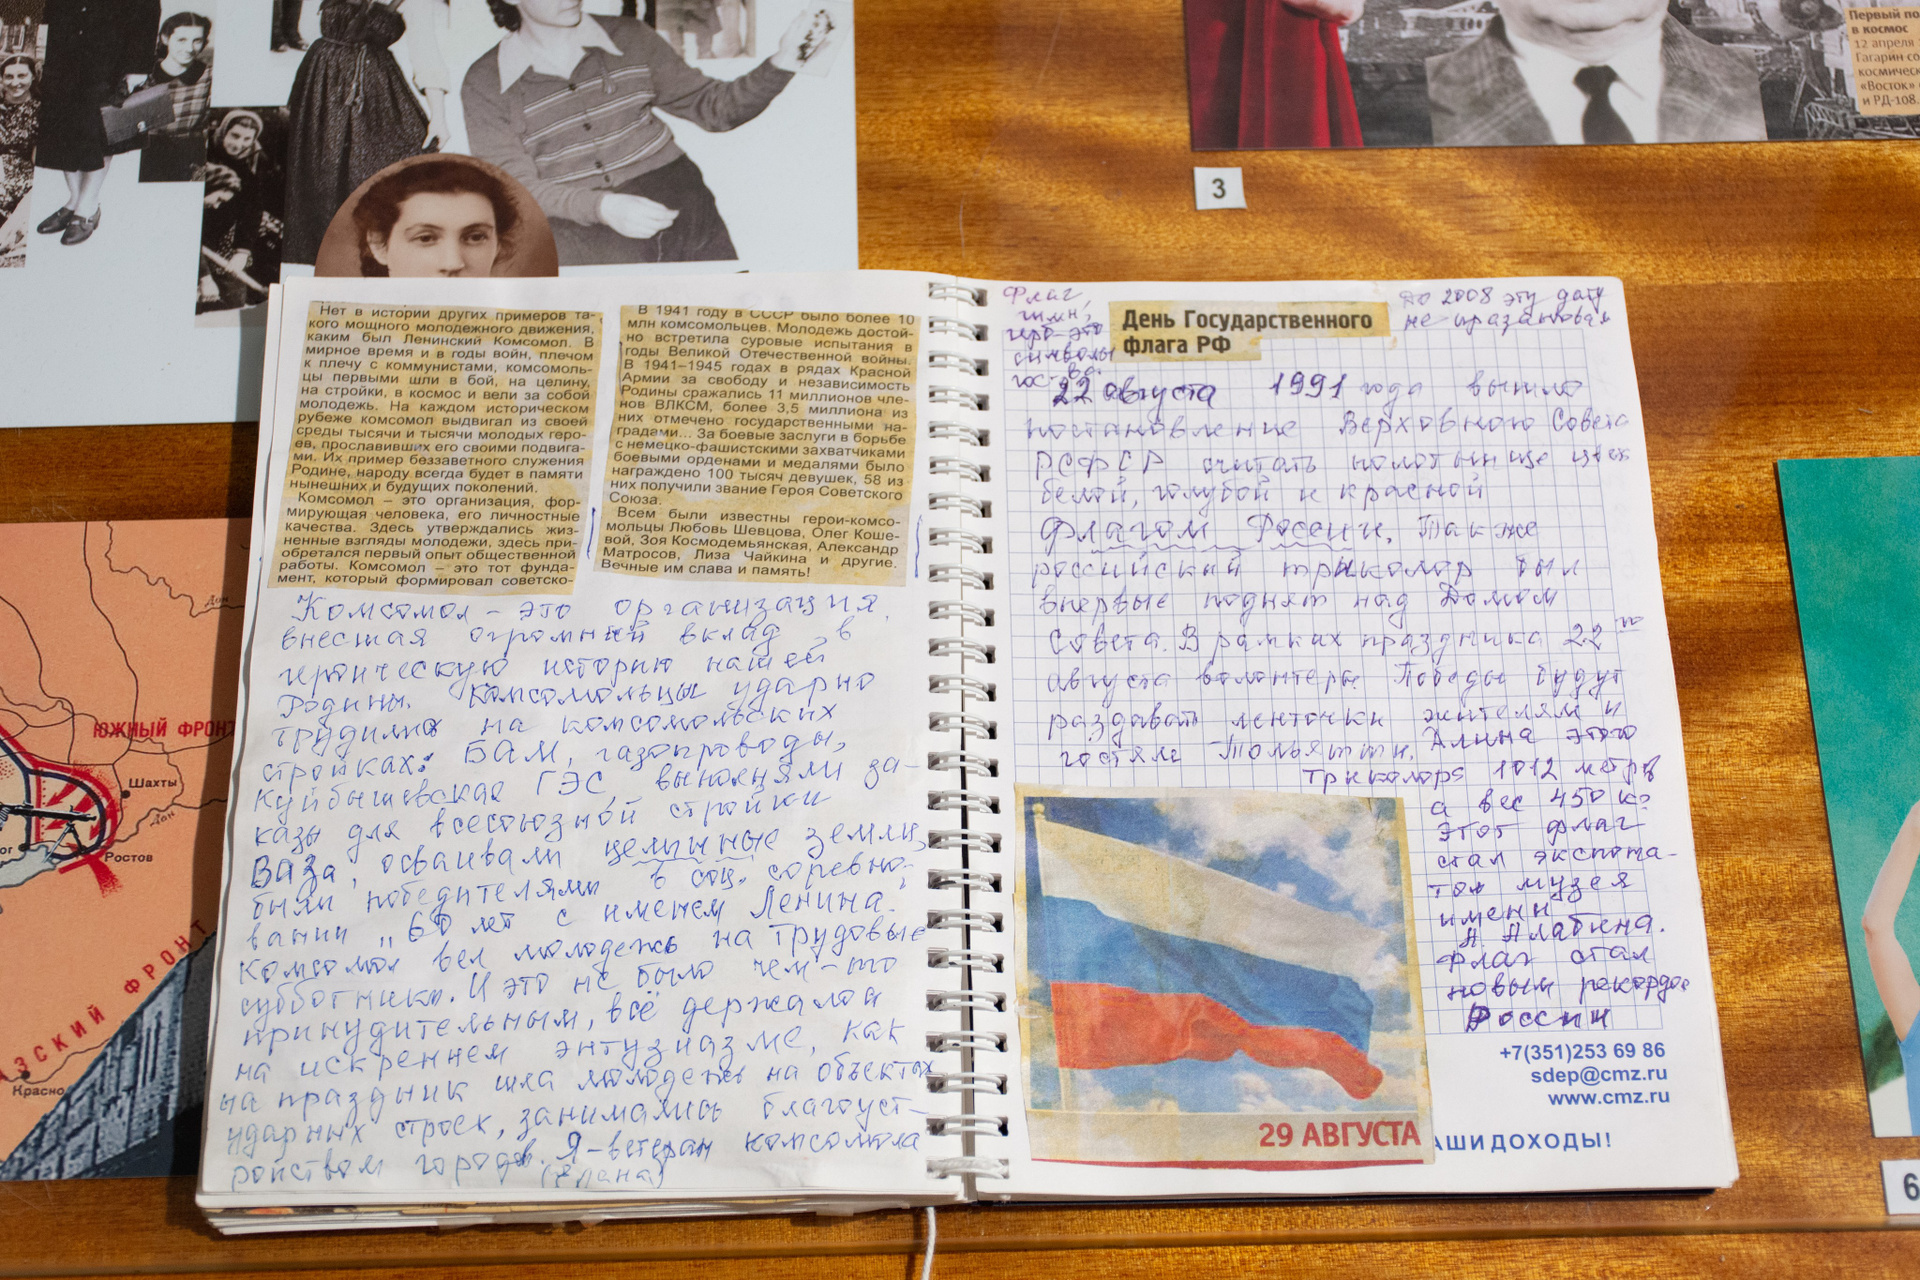 Первый по
в космос
12 апреля
Гагарин со
космическ
«Восток»
и РД-108.
3
Нет в истории других примеров та-
кого мощного молодежного движения,
каким был Ленинский Комсомол. В
мирное время и в годы войн, плечом
к плечу с коммунистами, комсомоль-
цы первыми шли в бой, на целину,
на стройки, в космос и вели за собой
молодежь. На каждом историческом
рубеже комсомол выдвигал из своей
среды тысячи и тысячи молодых геро-
ев, прославивших его своими подвига-
ми. Их пример беззаветного служения
Родине, народу всегда будет в памяти
нынешних и будущих поколений.
Комсомол – это организация, фор-
мирующая человека, его личностные
качества. Здесь утверждались жиз-
ненные взгляды молодежи, здесь при-
обретался первый опыт общественной
работы. Комсомол – это тот фунда-
мент, который формировал советско-
В 1941 году в СССР было более 10
млн комсомольцев. Молодежь достой-
но встретила суровые испытания в
годы Великой Отечественной войны.
В 1941–1945 годах в рядах Красной
Армии за свободу и независимость
Родины сражались 11 миллионов чле-
нов ВЛКСМ, более 3,5 миллиона из
них отмечено государственными на-
градами... За боевые заслуги в борьбе
с немецко-фашистскими захватчиками
боевыми орденами и медалями было
награждено 100 тысяч девушек, 58 из
них получили звание Героя Советского
Союза.
Всем были известны герои-комсо-
мольцы Любовь Шевцова, Олег Коше-
вой, Зоя Космодемьянская, Александр
Матросов, Лиза Чайкина и другие.
Вечные им слава и память!
Комсомол – это организация,
внесшая огромный вклад в
героическую историю нашей
Родины. Комсомольцы ударно
трудились на комсомольских
стройках: БАМ, газопроводы,
Куйбышевская ГЭС выполняли за-
казы для всесоюзной стройки
ВАЗа, осваивали целинные земли,
были победителями в соц. соревно-
вании „60 лет с именем Ленина.
Комсомол вел молодежь на трудовые
субботники. И это не было чем-то
принудительным, всё держалось
на искреннем энтузиазме, как
на праздник шла молодежь на объекты
ударных строек, занимались благоуст-
ройством городов. Я – ветеран комсомола
Флаг,
гимн,
герб – это
символы
гос-ва.
День Государственного
флага РФ
До 2008 эту дату
не праздновали
22 августа 1991 года вышло
постановление Верховного Совета
РСФСР считать полотнище цвет
белой, голубой и красной
флагом России. Также
российский триколор был
впервые поднят над Домом
Совета. В рамках праздника 22
августа волонтеры Победы будут
раздавать ленточки жителям и
гостям Тольятти. Длина этого
триколора 1012 метров
а вес 450 кг
Этот флаг
стал экспона-
том музея
имени
П. Алабина.
Флаг стал
новым рекордом
России
29 АВГУСТА
+7(351)253 69 86
sdep@cmz.ru
www.cmz.ru
АШИ ДОХОДЫ!
ЮЖНЫЙ ФРОНТ
Шахты
Дон
Дон
Ростов
АЗСКИЙ ФРОНТ
Красно
6